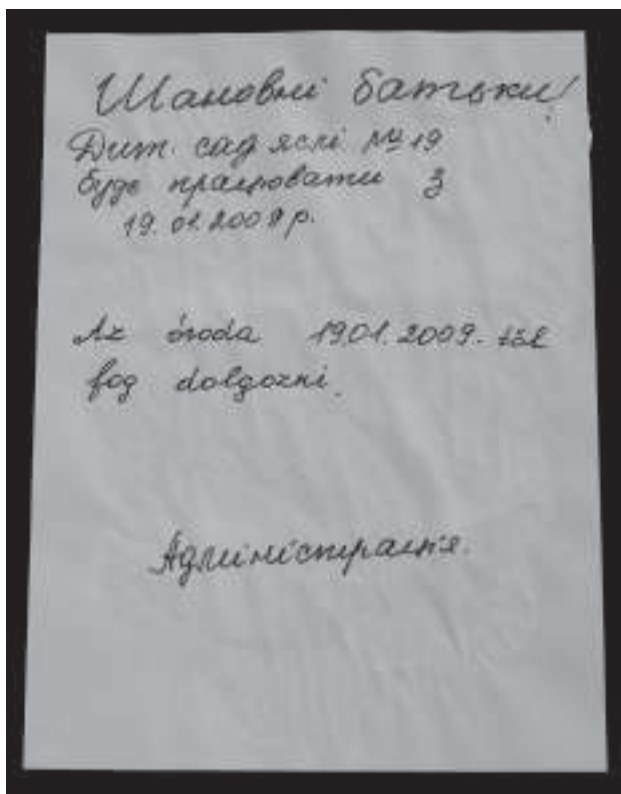 Шановні батьки!
Дит. сад ясні № 19
буде працювати з
19.01.2009 р.
Az óvoda 1901.2009.-től
fog dolgozni.
Адміністрація.